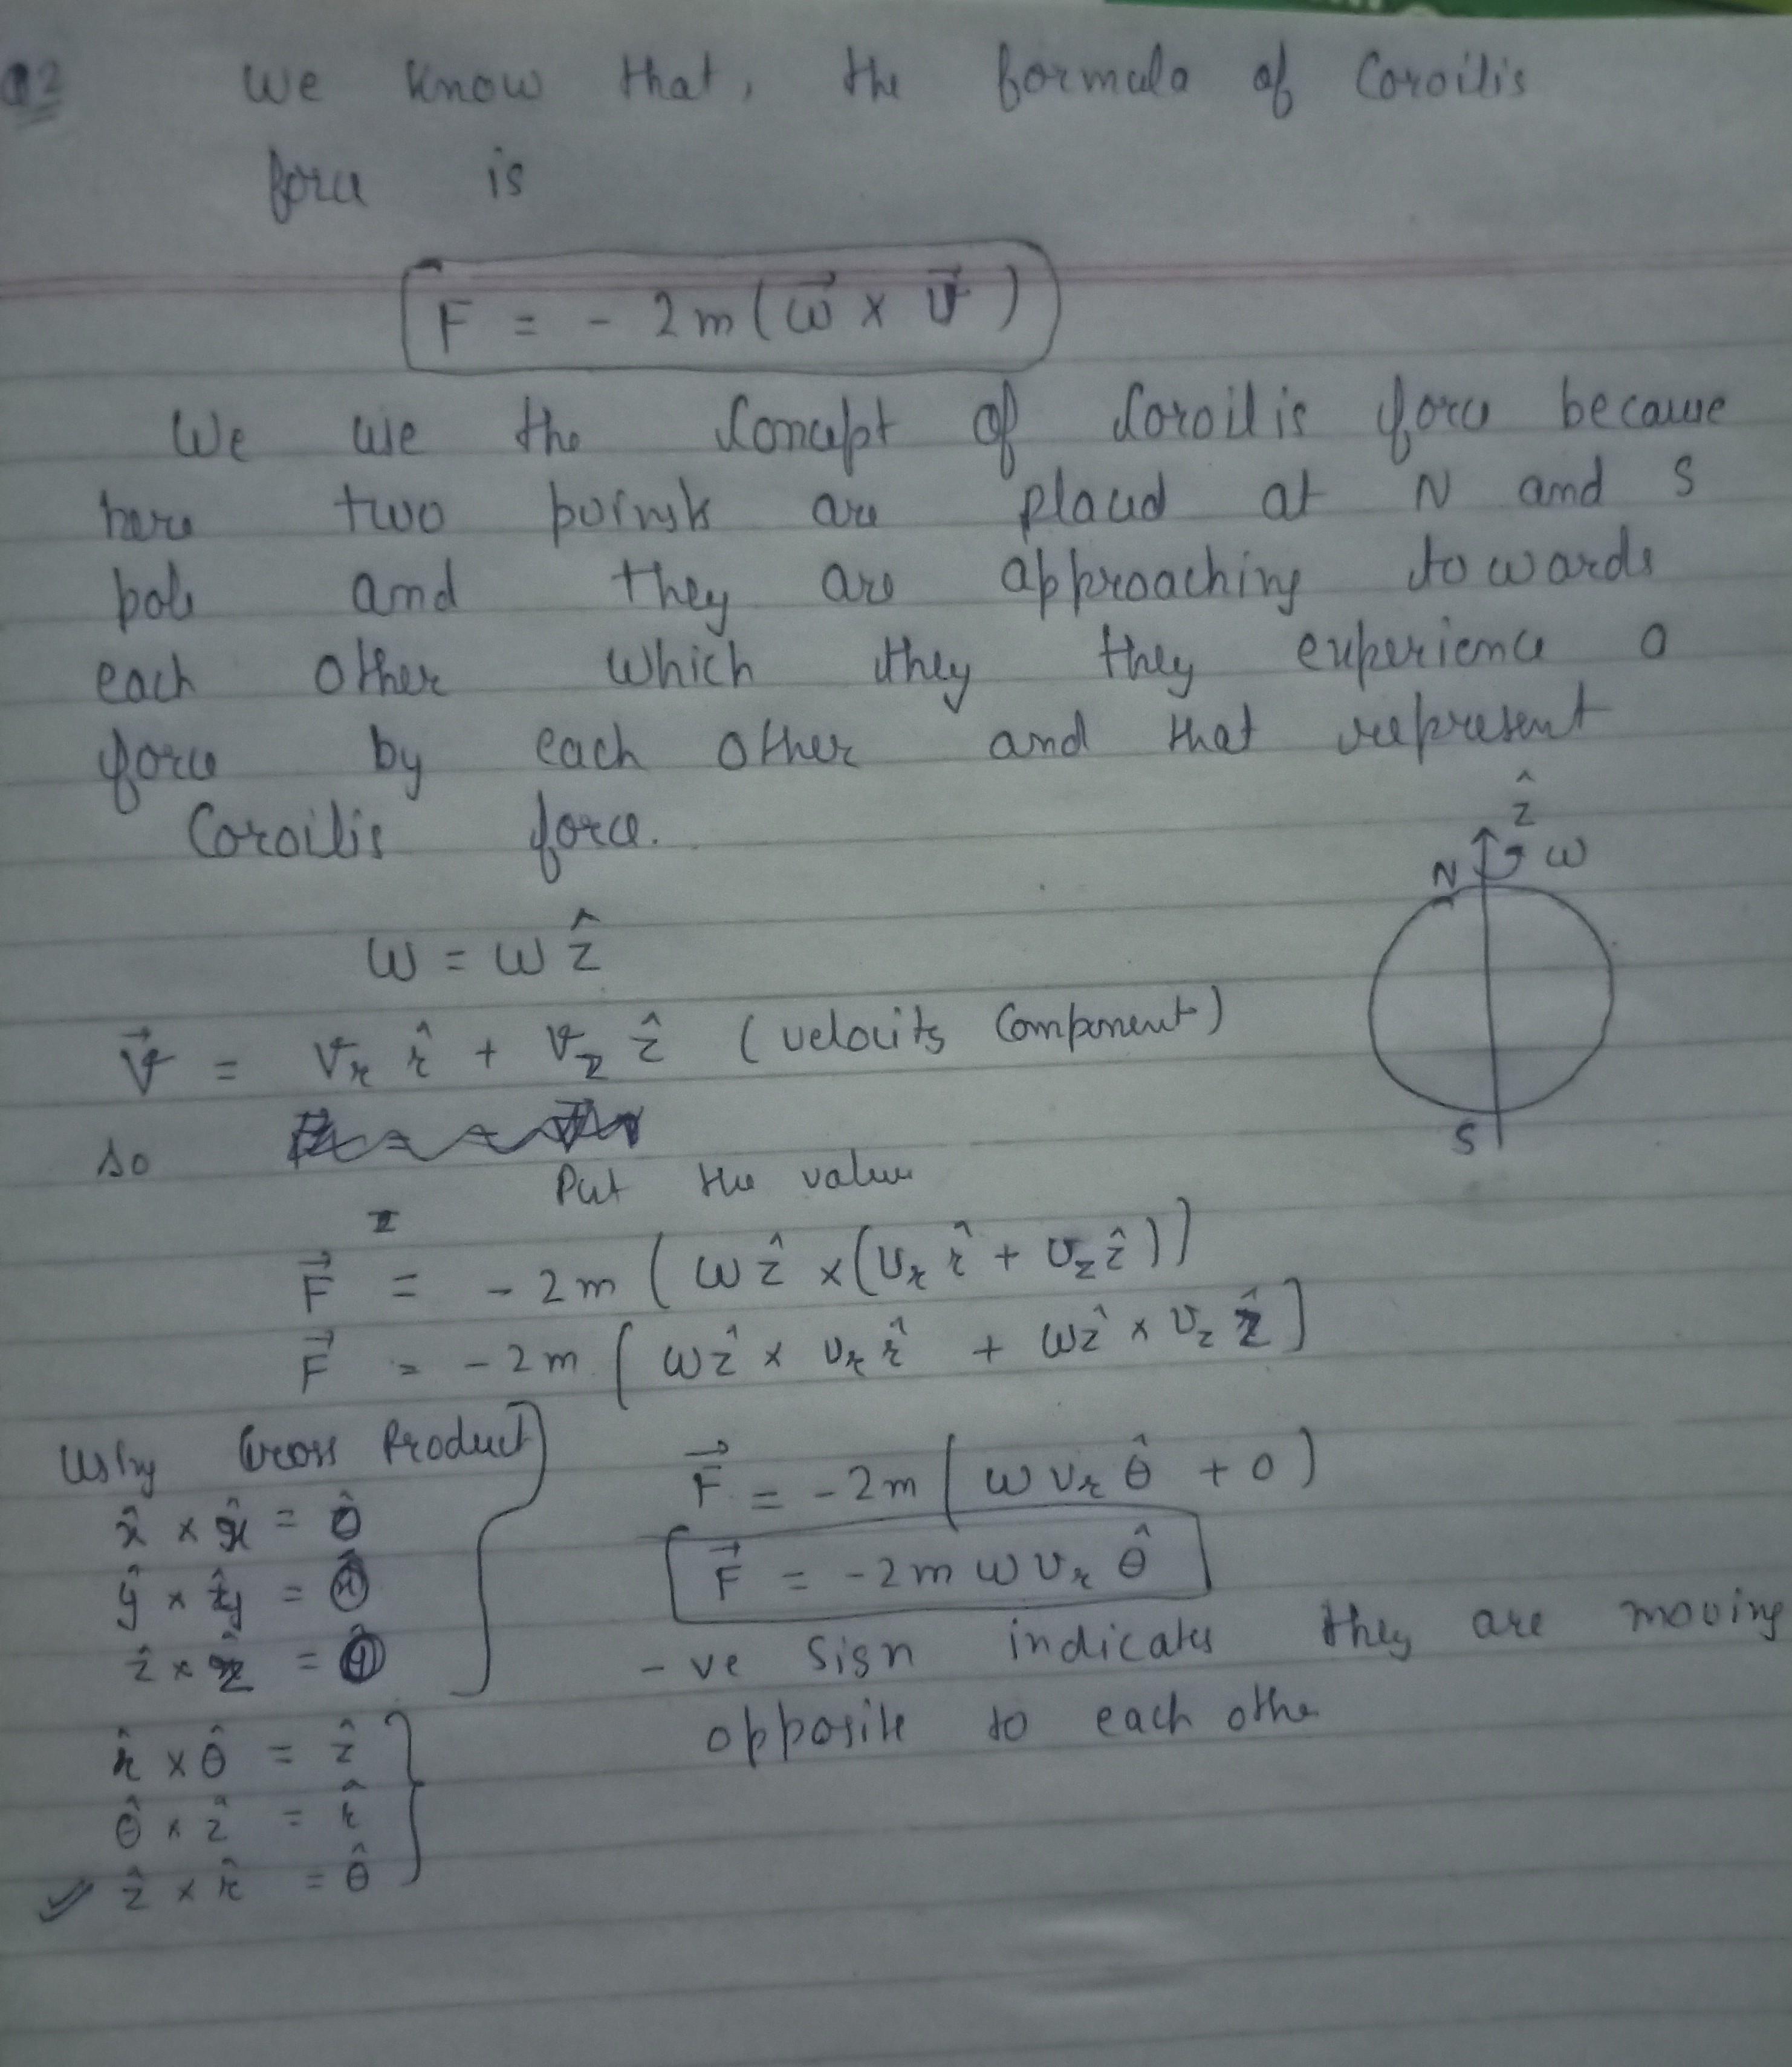 Q2 We know that, the formula of Coroilis
force is
F = - 2m(ω⃗ x v⃗)
We use the Concept of Coroilis force because
here two points are placed at N and S
pole and they are approaching towards
each other which they they experience a
force by each other and that represent
Coroilis force.
ẑ
N ω
S
ω = ω ẑ
v⃗ = v_r r̂ + v_z ẑ (velocity Component)
so
Put the value
F⃗ = - 2m ( ω ẑ x (v_r r̂ + v_z ẑ))
F⃗ = - 2m [ ωẑ x v_r r̂ + ωẑ x v_z ẑ ]
Using Cross Product
x̂ x x̂ = 0
ŷ x ŷ = 0
ẑ x ẑ = 0
r̂ x θ̂ = ẑ
θ̂ x ẑ = r̂
✓ ẑ x r̂ = θ̂
F⃗ = - 2m [ ω v_r θ̂ + 0 )
F⃗ = - 2m ω v_r θ̂
- ve Sign indicates they are moving
opposite to each othe